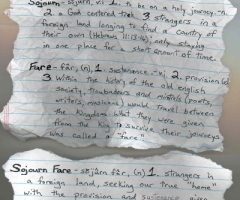 Sojourn - sōjurn, vi 1. to be on a holy journey -n.
2 a God centered trip 3 strangers in a
foreign land longing to find a country of
their own (Hebrews 11:13-16), only staying
in one place for a short amount of time.
Fare - fâr, (n) 1. sustenance -vi, 2. provision(s)
3 Within the history of the old english
society, troubadours and minstrels (poets,
writers, musicians) would travel between
the Kingdoms. What they were given
from the King to survive their journeys
was called a "fare"
Sojourn Fare - sōjurn fâr, (n) 1. strangers in
a foreign land, seeking our true "home"
with the provision and sustenance given